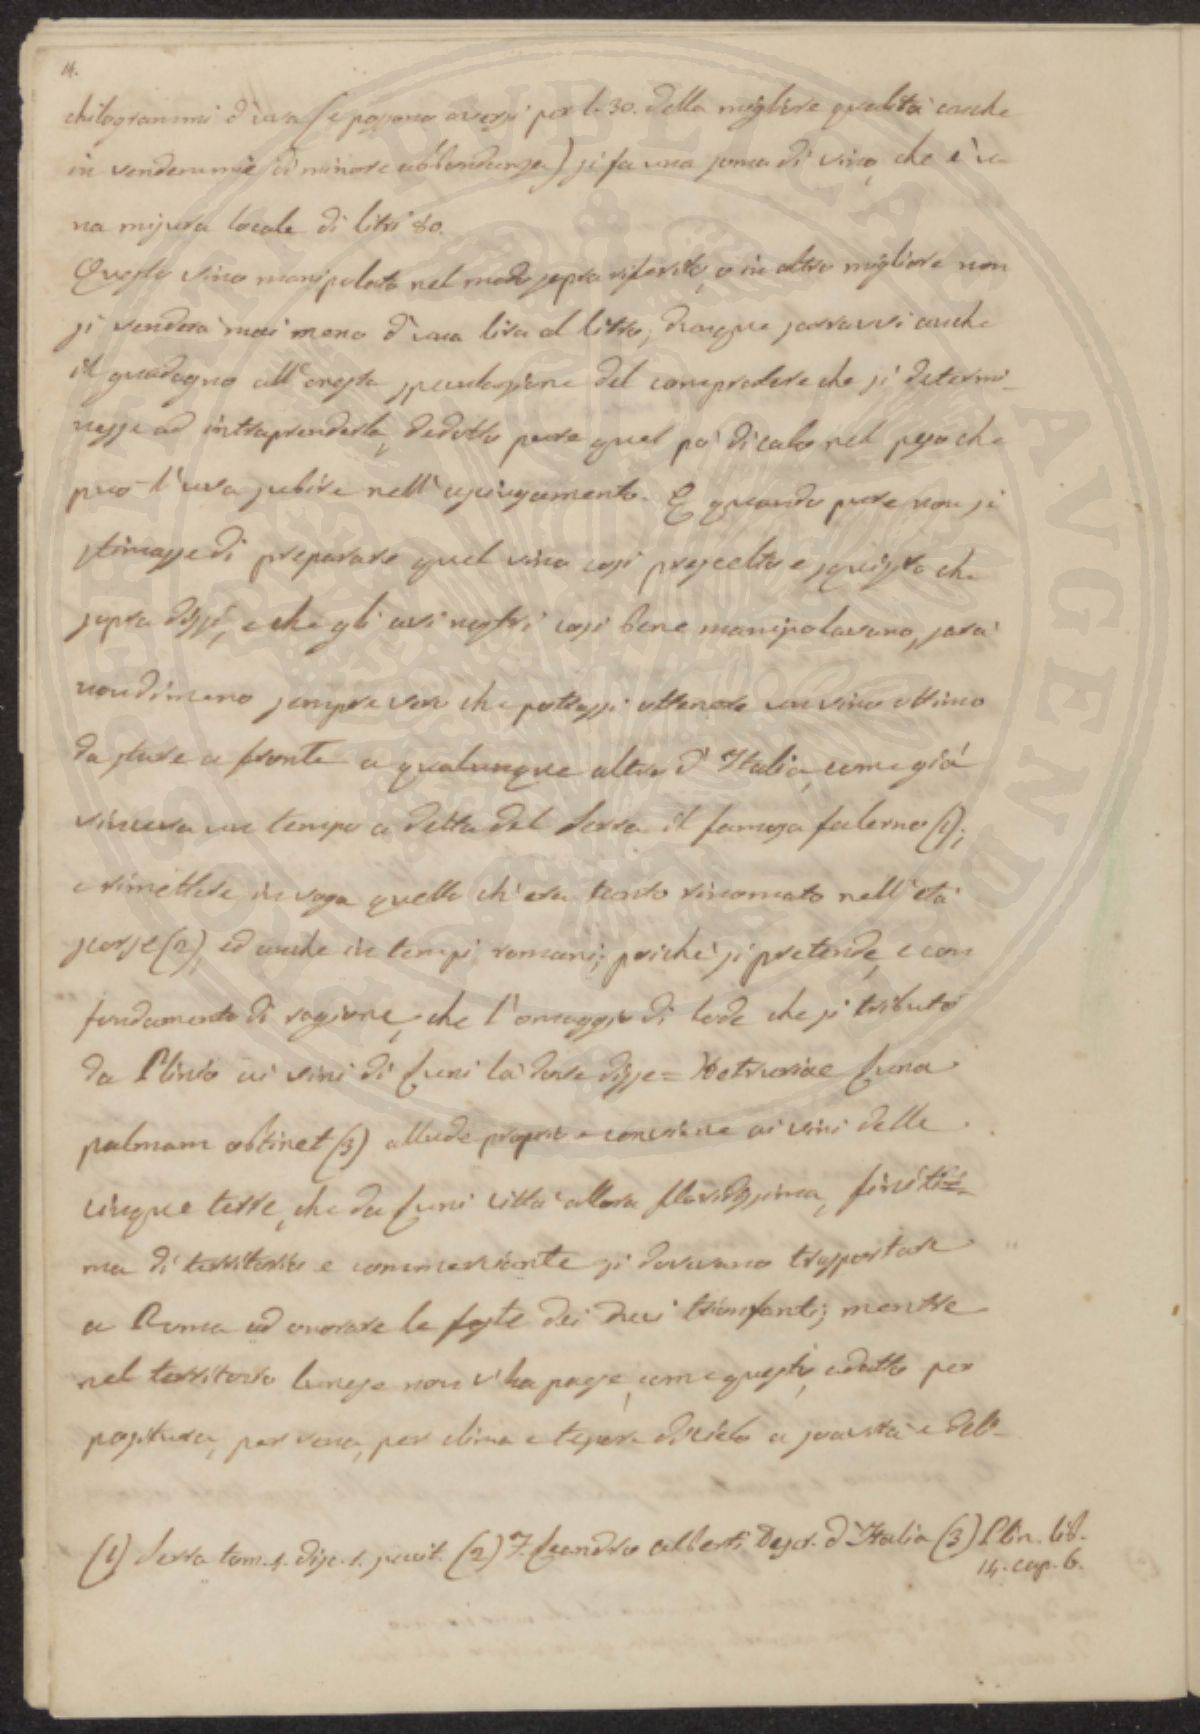 14.
chilogrammi d'uva (e possono aversi per L. 30. della migliore qualità anche
in vendemmie di minore abbondanza) si fa una soma di vino, che è u
na misura locale di litri 80.
Questo vino manipolato nel modo sopra riferito, o in altro migliore non
si venderà mai meno d'una lira al litro, dunque saravvi anche
il guadagno all'onesta speculazione del compratore che si determi-
nasse ad intraprenderla, dedotto pure quel po' di calo nel peso che
può l'uva subire nell'asciugamento. E quando pure non si
stimasse di preparare quel vino così prescelto e squisito che
sopra dissi, e che gli avi nostri così bene manipolavano, sarà
nondimeno sempre vero che potrassi ottenere un vino ottimo
da stare a fronte a qualunque altro d'Italia, come già
vinceva un tempo a detta del Serra il famoso falerno (1);
e rimettere in voga quello ch'era tanto rinomato nell'età
scorse (2), ed anche in tempi romani; poichè si pretende, e con
fondamento di ragione, che l'omaggio di lode che si tributò
da Plinio ai vini di Luni là dove disse = Hetruriae Luna
palmam obtinet (3) allude proprio e conviene ai vini delle
cinque terre, che da Luni città allora floridissima, finiti=
ma di territorio e commerciante si dovevano trasportare
a Roma ad onorare le feste dei duci trionfanti; mentre
nel territorio lunese non v'ha paese, come questo, adatto per
positura, per vena, per clima e tepore di cielo a soavità e deli-
(1) Serra tom. 4. disc. 1. pavit. (2) F. Leandro alberti Descr. d'Italia (3) Plin. lib.
14. cap. 6.